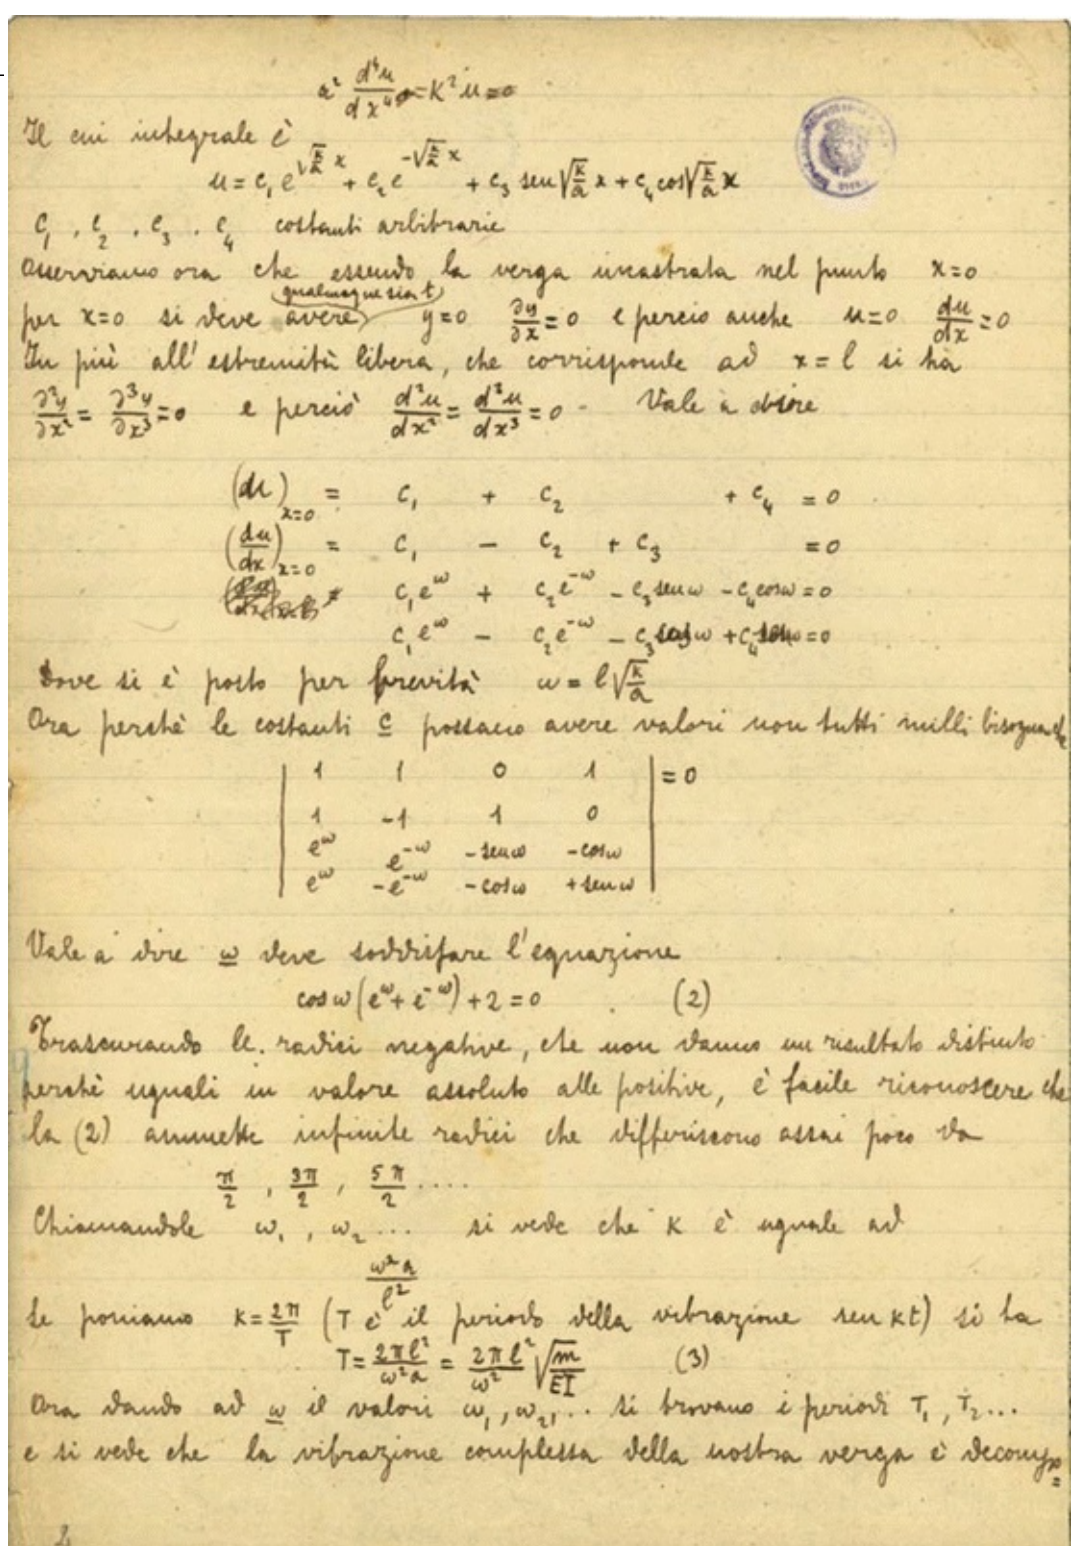 a² d⁴u/dx⁴ = K²u = 0
Il cui integrale è
u = c₁ e^(√(K/a) x) + c₂ e^(-√(K/a) x) + c₃ sen√(K/a) x + c₄ cos√(K/a) x
c₁ , c₂ , c₃ , c₄ costanti arbitrarie
Osserviamo ora che essendo la verga incastrata nel punto x=0
(qualunque sia t)
per x=0 si deve avere y=0 ∂y/∂x=0 e percio anche u=0 du/dx=0
In più all'estremità libera, che corrisponde ad x = l si ha
∂²y/∂x² = ∂³y/∂x³ = 0 e perciò d²u/dx² = d³u/dx³ = 0 - Vale a dire
(u)ₓ₌₀ = c₁ + c₂ + c₄ = 0
(du/dx)ₓ₌₀ = c₁ - c₂ + c₃ = 0
c₁e^ω + c₂e^-ω - c₃senω - c₄cosω = 0
c₁e^ω - c₂e^-ω - c₃cosω + c₄senω = 0
Dove si è posto per brevità ω = l√(K/a)
Ora perchè le costanti c possano avere valori non tutti nulli bisogna che
| 1 1 0 1 | = 0
| 1 -1 1 0 |
| e^ω e^-ω -senω -cosω |
| e^ω -e^-ω -cosω +senω |
Vale a dire ω deve soddisfare l'equazione
cosω(e^ω + e^-ω) + 2 = 0 (2)
Trascurando le radici negative, che non danno un risultato distinto
perchè uguali in valore assoluto alle positive, è facile riconoscere che
la (2) ammette infinite radici che differiscono assai poco da
π/2 , 3π/2 , 5π/2 ....
Chiamandole ω₁ , ω₂ ... si vede che K è uguale ad
ω²a/l²
Se poniamo K = 2π/T (T è il periodo della vibrazione sen Kt) si ha
T = 2πl²/ω²a = 2πl²/ω² √(m/EI) (3)
Ora dando ad ω il valori ω₁, ω₂, .. si trovano i periodi T₁ , T₂...
e si vede che la vibrazione complessa della nostra verga è decompo=